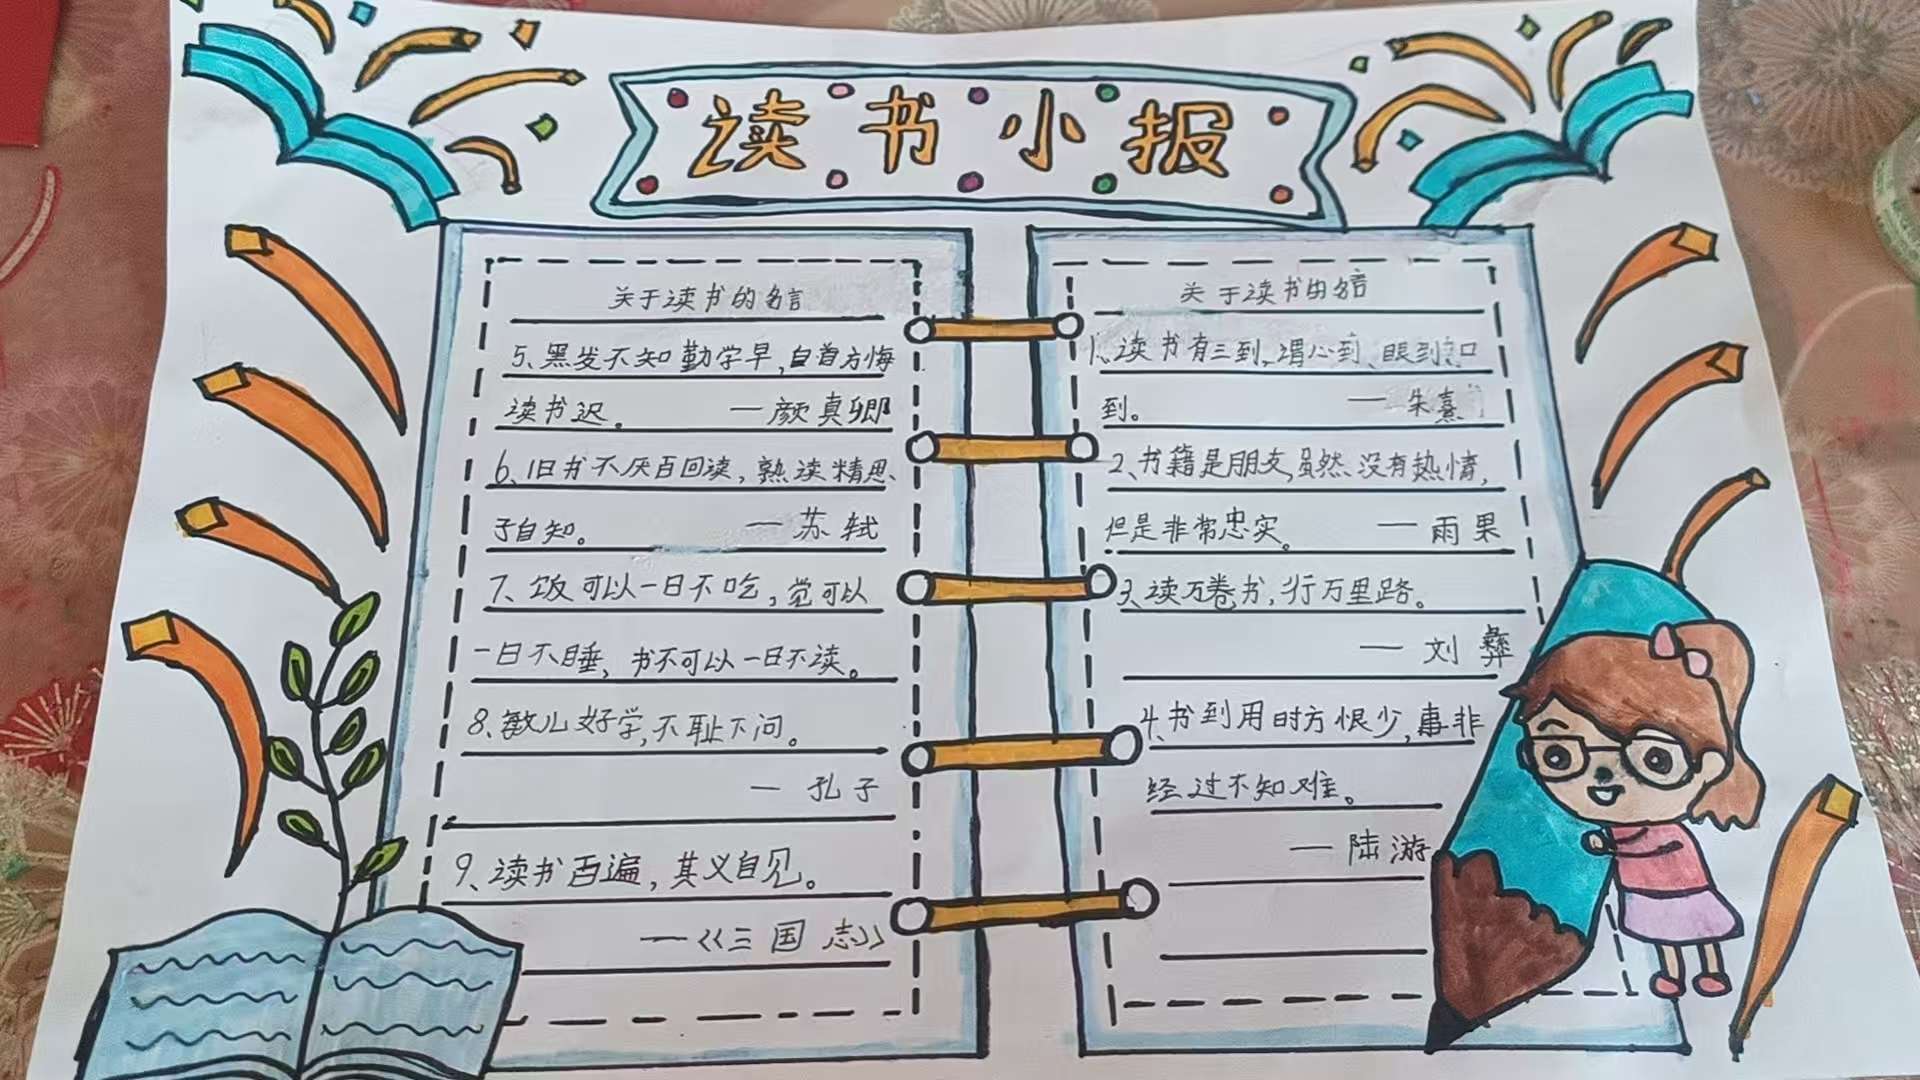 读书小报
关于读书的名言
5、黑发不知勤学早，白首方悔
读书迟。 —颜真卿
6、旧书不厌百回读，熟读精思
子自知。 —苏轼
7、饭可以一日不吃，觉可以
一日不睡，书不可以一日不读。
8、敏儿好学，不耻下问。
— 孔子
9、读书百遍，其义自见。
—《三国志》
关于读书的名言
1、读书有三到，谓心到、眼到、口
到。 — 朱熹
2、书籍是朋友，虽然没有热情，
但是非常忠实。 — 雨果
3、读万卷书，行万里路。
— 刘彝
4、书到用时方恨少，事非
经过不知难。
— 陆游